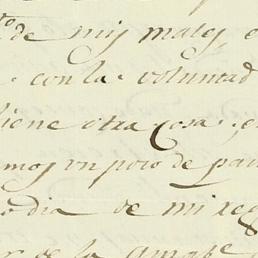 de mis males
con la voluntad
tiene otra cosa
mos un poco de
dia de mi
de la